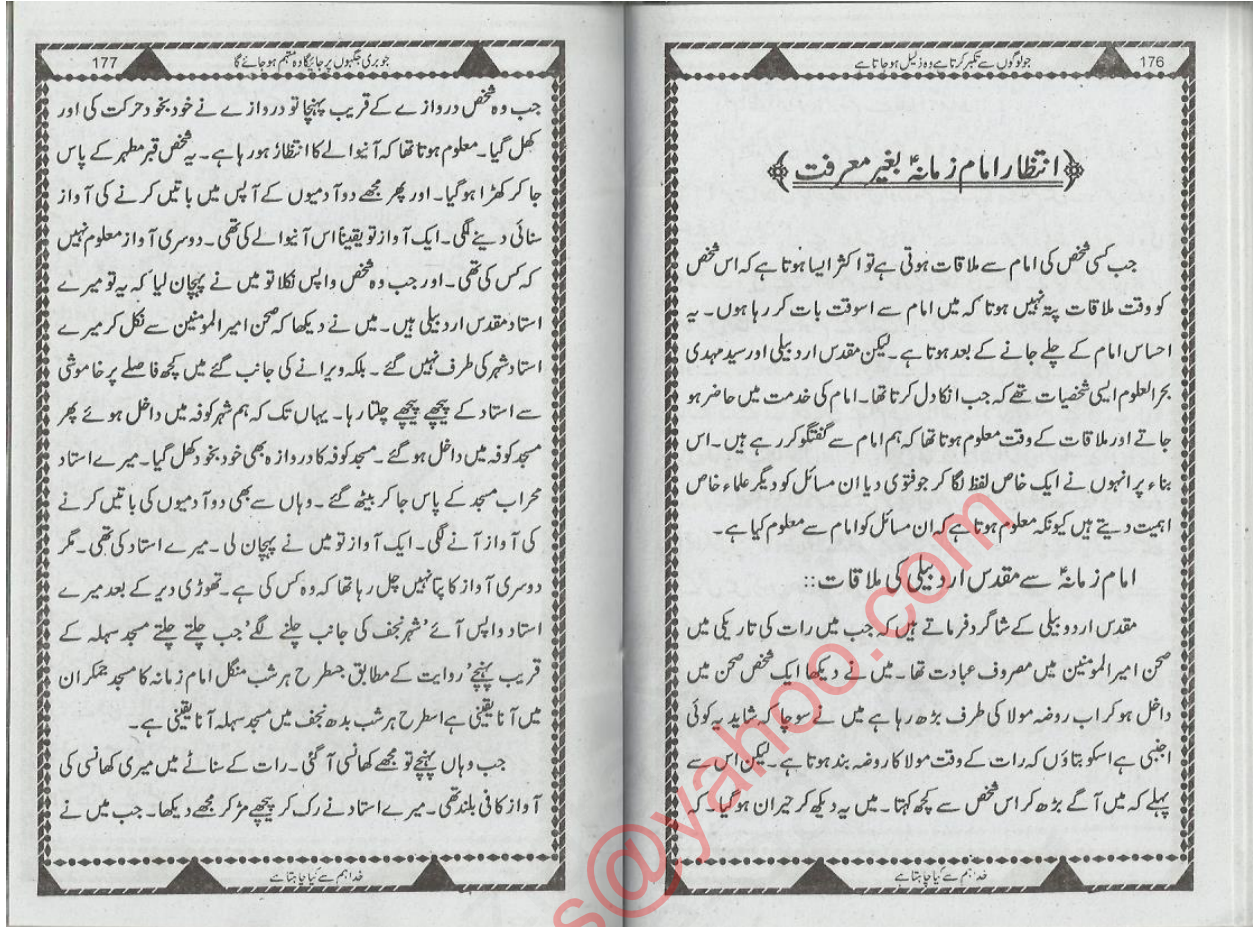 176
جو لوگوں سے تکبر کرتا ہے وہ ذلیل ہو جاتا ہے
﴿انتظار امام زمانہؑ بغیر معرفت﴾
جب کسی شخص کی امام سے ملاقات ہوتی ہے تو اکثر ایسا ہوتا ہے کہ اس شخص
کو وقت ملاقات پتہ نہیں ہوتا کہ میں امام سے اسوقت بات کر رہا ہوں۔ یہ
احساس امام کے چلے جانے کے بعد ہوتا ہے۔ لیکن مقدس اردبیلی اور سید مہدی
بحرالعلوم ایسی شخصیات تھے کہ جب انکا دل کرتا تھا۔ امام کی خدمت میں حاضر ہو
جاتے اور ملاقات کے وقت معلوم ہوتا تھا کہ ہم امام سے گفتگو کر رہے ہیں۔ اس
بناء پر انہوں نے ایک خاص لفظ لگا کر جو فتوی دیا ان مسائل کو دیگر علماء خاص
اہمیت دیتے ہیں کیونکہ معلوم ہوتا ہے کہ ان مسائل کو امام سے معلوم کیا ہے۔
امام زمانہؑ سے مقدس اردبیلی کی ملاقات::
مقدس اردوبیلی کے شاگرد فرماتے ہیں کہ جب میں رات کی تاریکی میں
صحن امیرالمومنین میں مصروف عبادت تھا۔ میں نے دیکھا ایک شخص صحن میں
داخل ہو کر اب روضہ مولا کی طرف بڑھ رہا ہے میں نے سوچا کہ شاید یہ کوئی
اجنبی ہے اسکو بتاؤں کہ رات کے وقت مولا کا روضہ بند ہوتا ہے۔ لیکن اس سے
پہلے کہ میں آگے بڑھ کر اس شخص سے کچھ کہتا۔ میں یہ دیکھ کر حیران ہو گیا۔ کہ
خدا ہم سے کیا چاہتا ہے
177
جو بری جگہوں پر جائیگا وہ متہم ہو جائے گا
جب وہ شخص دروازے کے قریب پہنچا تو دروازے نے خود بخود حرکت کی اور
کھل گیا۔ معلوم ہوتا تھا کہ آنیوالے کا انتظار ہو رہا ہے۔ یہ شخص قبر مطہر کے پاس
جا کر کھڑا ہو گیا۔ اور پھر مجھے دو آدمیوں کے آپس میں باتیں کرنے کی آواز
سنائی دینے لگی۔ ایک آواز تو یقیناً اس آنیوالے کی تھی۔ دوسری آواز معلوم نہیں
کہ کس کی تھی۔ اور جب وہ شخص واپس نکلا تو میں نے پہچان لیا کہ یہ تو میرے
استاد مقدس اردبیلی ہیں۔ میں نے دیکھا کہ صحن امیرالمومنین سے نکل کر میرے
استاد شہر کی طرف نہیں گئے۔ بلکہ ویرانے کی جانب گئے میں کچھ فاصلے پر خاموشی
سے استاد کے پیچھے پیچھے چلتا رہا۔ یہاں تک کہ ہم شہر کوفہ میں داخل ہوئے پھر
مسجد کوفہ میں داخل ہو گئے۔ مسجد کوفہ کا دروازہ بھی خود بخود کھل گیا۔ میرے استاد
محراب مسجد کے پاس جا کر بیٹھ گئے۔ وہاں سے بھی دو آدمیوں کی باتیں کرنے
کی آواز آنے لگی۔ ایک آواز تو میں نے پہچان لی۔ میرے استاد کی تھی۔ مگر
دوسری آواز کا پتا نہیں چل رہا تھا کہ وہ کس کی ہے۔ تھوڑی دیر کے بعد میرے
استاد واپس آئے' شہر نجف کی جانب چلنے لگے' جب چلتے چلتے مسجد سہلہ کے
قریب پہنچے' روایت کے مطابق جسطرح ہر شب منگل امام زمانہ کا مسجد جمکران
میں آنا یقینی ہے اسطرح ہر شب بدھ نجف میں مسجد سہلہ آنا یقینی ہے۔
جب وہاں پہنچے تو مجھے کھانسی آ گئی۔ رات کے سناٹے میں میری کھانسی کی
آواز کافی بلند تھی۔ میرے استاد نے رک کر پیچھے مڑ کر مجھے دیکھا۔ جب میں نے
خدا ہم سے کیا چاہتا ہے
s@yahoo.com